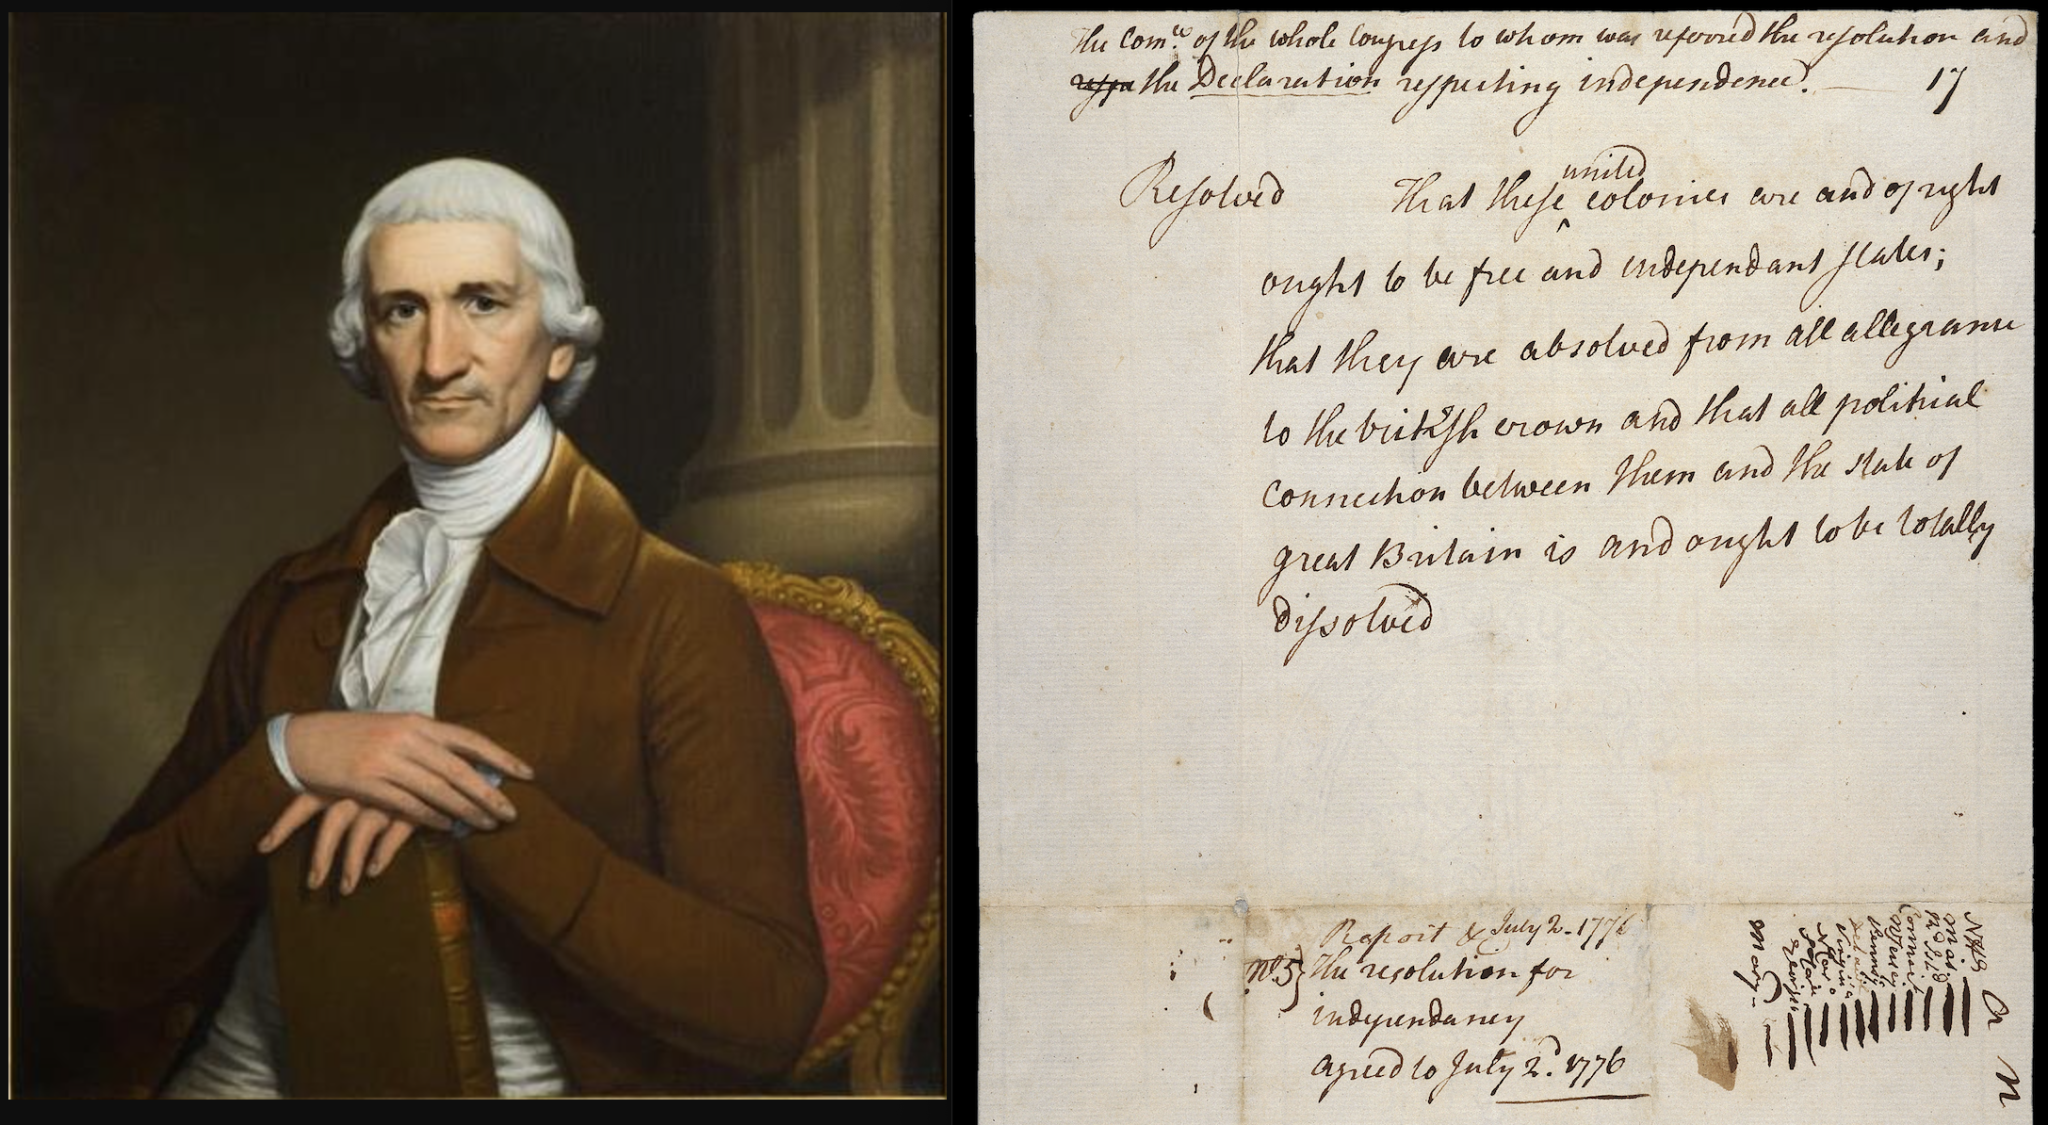 The Com.ee of the whole Congress to whom was referred the resolution and
the Declaration respecting independence. — 17
united
Resolved That these ^ colonies are and of right
ought to be free and independant states;
that they are absolved from all allegiance
to the british crown and that all political
connection between them and the state of
great Britain is and ought to be totally
dissolved
Report & July 2. 1776
No. 5} The resolution for
independancy
agreed to July 2.d 1776
Mary
Georgia
Virginia
Connect